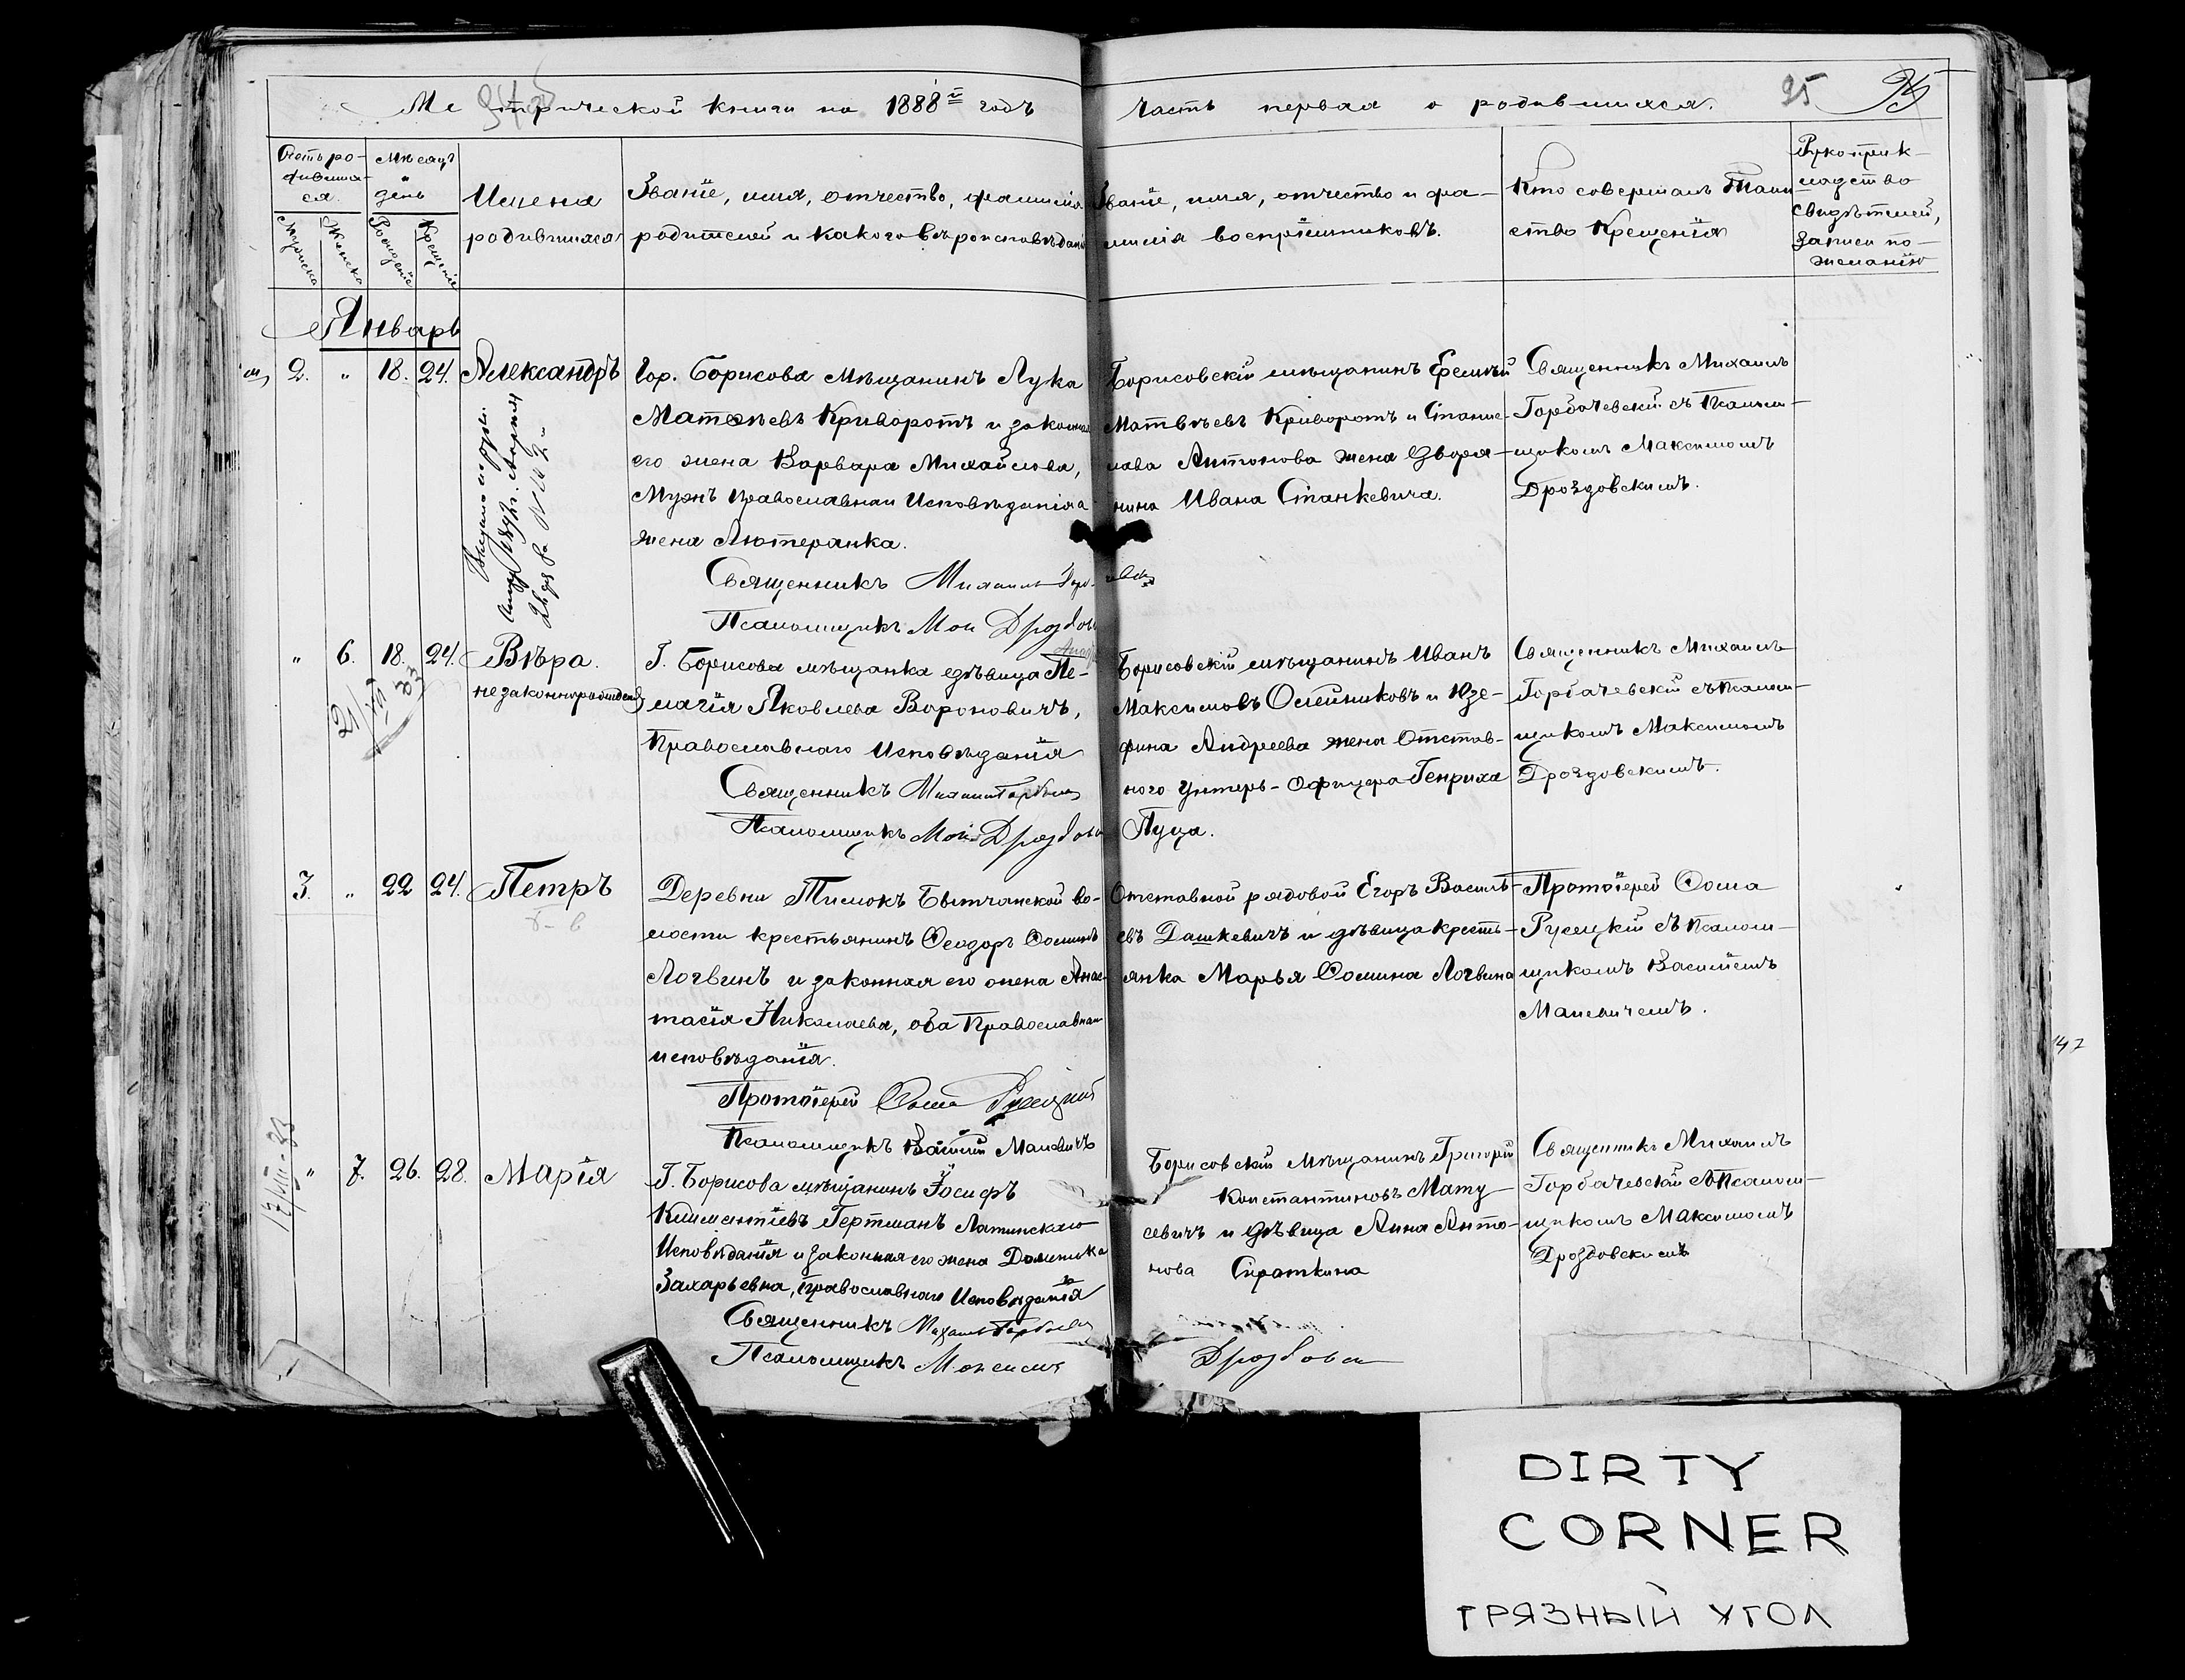 Метрической книги на 1888й годъ
часть первая о родившихся.
25
Счетъ ро-
дившихъ-
ся.
Мужеска
Женска
Мѣсяцъ
и
день
Рожденiе
Крещенiе
Имена
родившихся
Званiе, имя, отчество, фамилiя
родителей и какого вѣроисповѣданi
Званiе, имя, отчество и фа-
милiя воспрiемниковъ.
Кто совершалъ Таин
ство Крещенiя
Рукоприк-
ладство
свидѣтелей,
записи по-
желанiю
Январь
2. " 18. 24. Александръ
Гор. Борисова мѣщанинъ Лука
Матвѣевъ Криворотъ и законная
его жена Варвара Михайлова,
Мужъ православнаи Исповѣданiя а
жена Лютеранка.
Священникъ Михаилъ
Псаломщикъ Дроздовск
Борисовскiй мѣщанинъ Еремѣй
Матвѣевъ Криворотъ и Станис-
лава Антонова жена Дворя-
нина Ивана Станкевича.
Священникъ Михаилъ
Горбачевскiй съ Псалом-
щикомъ Максимомъ
Дроздовскимъ.
" 6. 18. 24. Вѣра.
незаконнорожден
21/VII 33
Г. Борисова мѣщанка дѣвица Пе-
лагiя Яковлева Вороновичъ,
Православнаго Исповѣданiя
Священникъ Михаилъ Горбачев
Псаломщикъ Дроздовск
Борисовскiй мѣщанинъ Иванъ
Максимовъ Олейниковъ и Юзе-
фина Андреева жена Отстав-
ного Унтеръ-Офицера Генриха
Пуца.
Священникъ Михаилъ
Горбачевскiй съ Псалом-
щикомъ Максимомъ
Дроздовскимъ.
3. " 22 24. Петръ
Деревни Тимокъ Бытчанской во-
лости крестьянинъ Ѳеодоръ Ѳоминъ
Логвинъ и законная его жена Анас-
тасiя Николаева, оба Православнаи
исповѣданiя.
Протоiерей Ѳома Русецкiй
Псаломщикъ Василiй Малевичъ
Отставной рядовой Егоръ Василь-
евъ Дашкевичъ и дѣвица кресть-
янка Марья Ѳомина Логвина
Протоiерей Ѳома
Русецкiй съ Псалом-
щикомъ Василiемъ
Малевичемъ.
17/VII-33
" 7. 26. 28. Марiя
Г. Борисова мѣщанинъ Iосифъ
Климентiевъ Гертманъ Латинскаго
Исповѣданiя и законная его жена Доминика
Захарьевна, православнаго Исповѣданiя
Священникъ Михаилъ Горбачев
Псаломщикъ Максимъ
Дроздовск
Борисовскiй Мѣщанинъ Григорiй
Константиновъ Мату-
севичъ и дѣвица Анна Анто-
нова Сираткина
Священникъ Михаилъ
Горбачевскiй съ Псалом-
щикомъ Максимомъ
Дроздовскимъ
147
DIRTY
CORNER
ГРЯЗНЫЙ УГОЛ